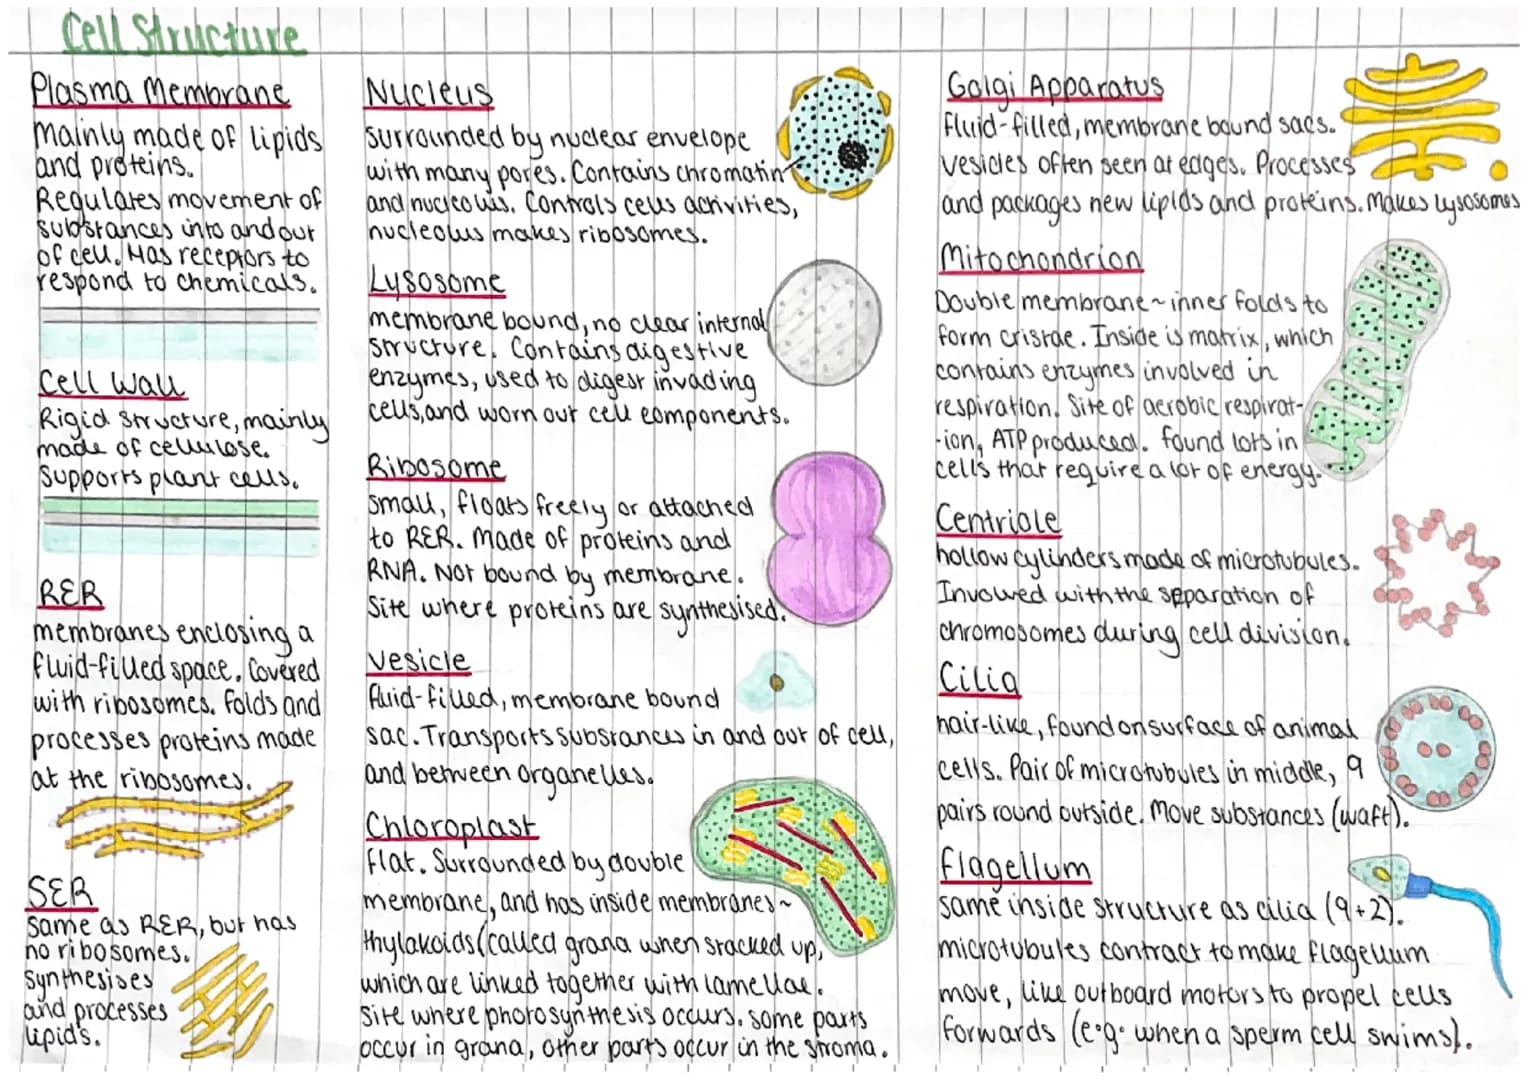 Cell Structure
Plasma Membrane
Mainly made of lipids
and proteins.
Regulates movement of
substances into and out
of cell. Has receptors to
respond to chemicals.
Cell Wall
Rigid structure, mainly
made of cellulose.
Supports plant cells.
RER
membranes enclosing a
fluid-filled space. Covered
with ribosomes. Folds and
processes proteins made
at the ribosomes.
SER
Same as RER, but has
no ribosomes.
Synthesises
and processes
lipids.
Nucleus
Surrounded by nuclear envelope
with many pores. Contains chromatin
and nucleolus. Controls cells activities,
nucleolus makes ribosomes.
Lysosome
membrane bound, no clear internal
structure. Contains digestive
enzymes, used to digest invading
cells, and worn out cell components.
Ribosome
Small, floats freely or attached
to RER. Made of proteins and
RNA. Not bound by membrane.
Site where proteins are synthesised.
Vesicle
fluid-filled, membrane bound
sac. Transports substances in and out of cell,
and between organelles.
Chloroplast
Flat. Surrounded by double
membrane, and has inside membranes~
thylakoids (called grana when stacked up,
which are linked together with lamellae.
Site where photosynthesis occurs. some parts
occur in grana, other parts occur in the stroma.
Golgi Apparatus
Fluid-filled, membrane bound sacs.
vesicles often seen at edges. Processes
and packages new lipids and proteins. Makes lysosomes
Mitochondrion
Double membrane ~ inner folds to
form cristae. Inside is matrix, which
contains enzymes involved in
respiration. Site of aerobic respirat-
-ion, ATP produced. found lots in
cells that require a lot of energy.
Centriole
hollow cylinders made of microtubules.
Involved with the separation of
chromosomes during cell division.
Cilia
hair-like, found on surface of animal
cells. Pair of microtubules in middle, 9
pairs round outside. Move substances (waft).
Flagellum
same inside structure as cilia (9+2).
microtubules contract to make flagellum
move, like outboard motors to propel cells
forwards (e.g. when a sperm cell swims).